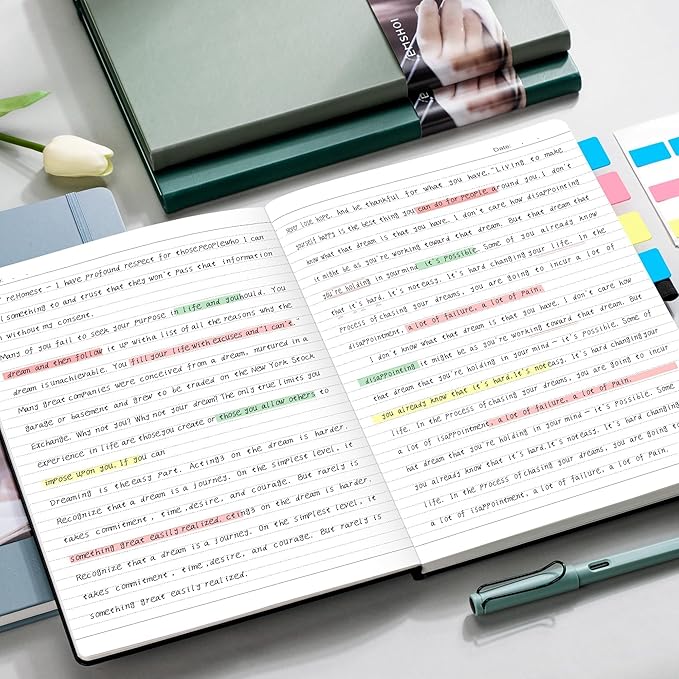 EMSHOI
reHonese – I have profound respect for thosepeoplewho I can
l something to and trust that they won't pass that information
without my consent.
Many of you fail to seek your purpose in life and youhould. You
dream and then follow it up witha list of all the reasons why the
dream isunachievable. You fill your life with excuses and "I can't."
Many great companies were conceived from a dream, nurtured in a
garage or basement and grew to be traded on the New York Stock
Exchange. Why not you? Why not your dream? The only true limits you
experience in life are thoseyou create or those you allow others to
impose upon you. If you can
Dreaming is the easy part. Acting on the dream is harder.
Recognize that a dream is a journey. On the simplest level, it
takes commitment, time, desire, and courage. But rarely is
something great easily realized. ctings on the dream is harder.
Recognize that a dream is a journey. On the simplest level, it
takes commitment, time, desire, and courage. But rarely is
something great easily realized.
Date:
never lose hope. And be thankful for what you have. "Living to make
yourself happy is the best thing you can do for people around you. I don't
know what that dream is that you have. I don't care how disappointing
it might be as you're working toward that dream. But that dream that
you're holding in yourmind it's possible. Some of you already know
that it's hard. It's not easy. It's hard changing your life. In the
process of chasing your dreams, you are going to incur a lot of
disappointment, a lot of failure, a lot of pain.
I don't know what that dream is that you have. I don't care how
disappointing it might be as you're working toward that dream. But
that dream that you're holding in your mind – it's possible. Some of
you already know that it's hard. It's not easy. It's hard changing your
life. In the process of chasing your dreams, you are going to incur
a lot of isappointment, a lot of failure, a lot of pain.
hat dream that you're holding in your mind – it's possible. Some
you already know that it's hard. It's not easy. It's hard changing
life. In the process of chasing your dreams, you are going to
a lot of isappointment, a lot of failure, a lot of pain.